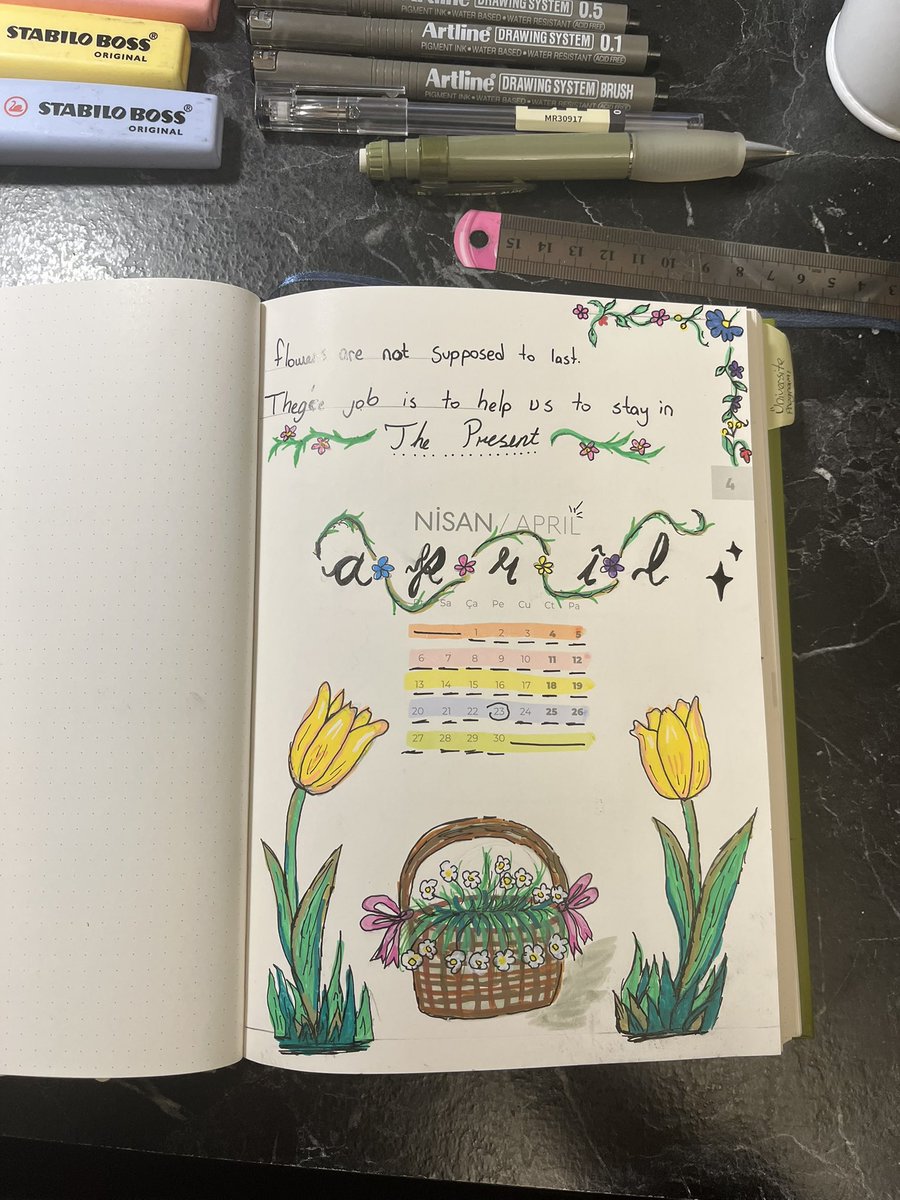 STABILO BOSS®
ORIGINAL
STABILO BOSS®
ORIGINAL
Artline® DRAWING SYSTEM 0.5
PIGMENT INK • WATER BASED • WATER RESISTANT ACID FREE
Artline® DRAWING SYSTEM 0.1
PIGMENT INK • WATER BASED • WATER RESISTANT ACID FREE
Artline® DRAWING SYSTEM BRUSH
PIGMENT INK • WATER BASED • WATER RESISTANT ACID FREE
MR30917
15 14 13 12 11 10 9 8 7 6 5 4 3
flowers are not supposed to last.
Their job is to help us to stay in
The Present
Üniversite
Programı
4
NİSAN / APRIL
a v r i l
Sa Ça Pe Cu Ct Pa
1 2 3 4 5
6 7 8 9 10 11 12
13 14 15 16 17 18 19
20 21 22 23 24 25 26
27 28 29 30